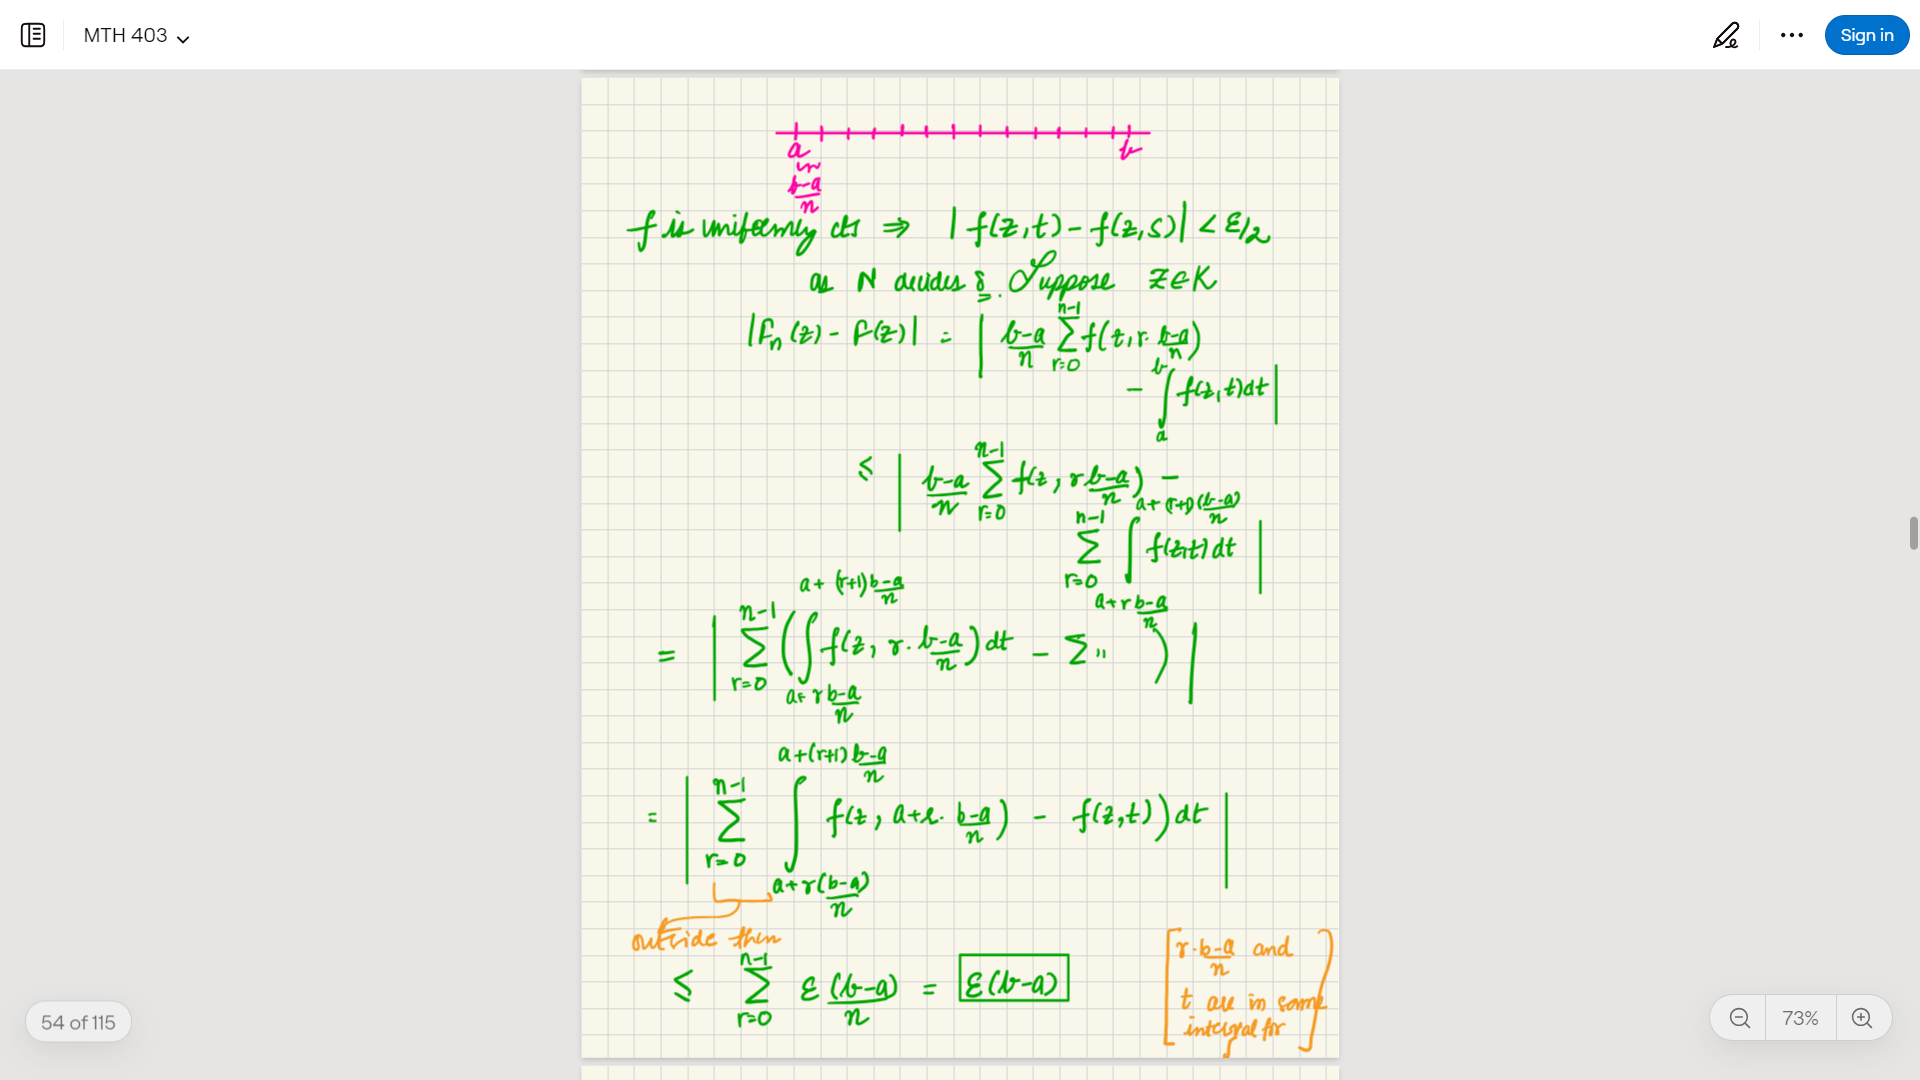 MTH 403
Sign in
a b
b-a/n
f is uniformly cts ⇒ |f(z,t) - f(z,s)| < ε/2
as N decides δ. Suppose z∈K
|Fn(z) - F(z)| = | b-a/n ∑_{r=0}^{n-1} f(t, r. b-a/n)
- ∫_a^b f(z,t)dt |
≤ | b-a/n ∑_{r=0}^{n-1} f(z, r b-a/n) -
∑_{r=0}^{n-1} ∫_{a+r b-a/n}^{a+(r+1)(b-a)/n} f(z,t)dt |
= | ∑_{r=0}^{n-1} ( ∫_{a+r b-a/n}^{a+(r+1) b-a/n} f(z, r. b-a/n) dt - ∑ " ) |
= | ∑_{r=0}^{n-1} ∫_{a+r(b-a)/n}^{a+(r+1) b-a/n} f(z, a+r. b-a/n) - f(z,t)) dt |
outside then
≤ ∑_{r=0}^{n-1} ε (b-a)/n = ε(b-a)
[r. b-a/n and
t are in same
integral for
∫]
54 of 115
73%